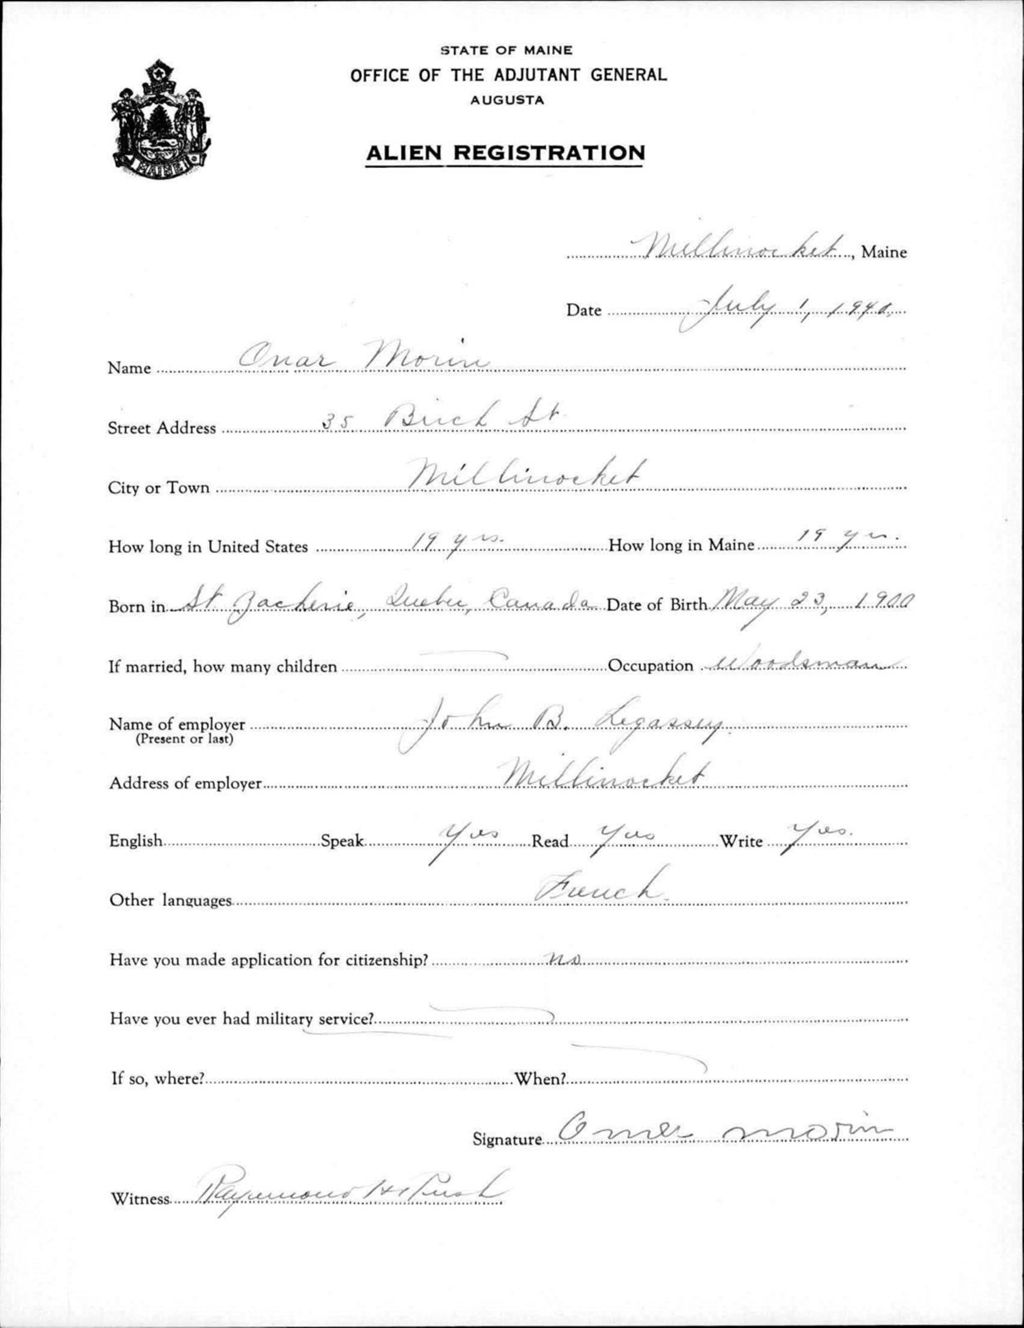 STATE OF MAINE
OFFICE OF THE ADJUTANT GENERAL
AUGUSTA
ALIEN REGISTRATION
Millinocket, Maine
Date July 1, 1940.
Name Omar Morin
Street Address 35 Birch St
City or Town Millinocket
How long in United States 19 yrs. How long in Maine 19 yrs.
Born in St Zacherie, Quebec, Canada Date of Birth May 23, 1900
If married, how many children Occupation Woodsman
Name of employer John B. Legassey
(Present or last)
Address of employer Millinocket
English Speak Yes Read Yes Write Yes.
Other languages French.
Have you made application for citizenship? no
Have you ever had military service?
If so, where? When?
Signature Omer Morin
Witness Raymond H.